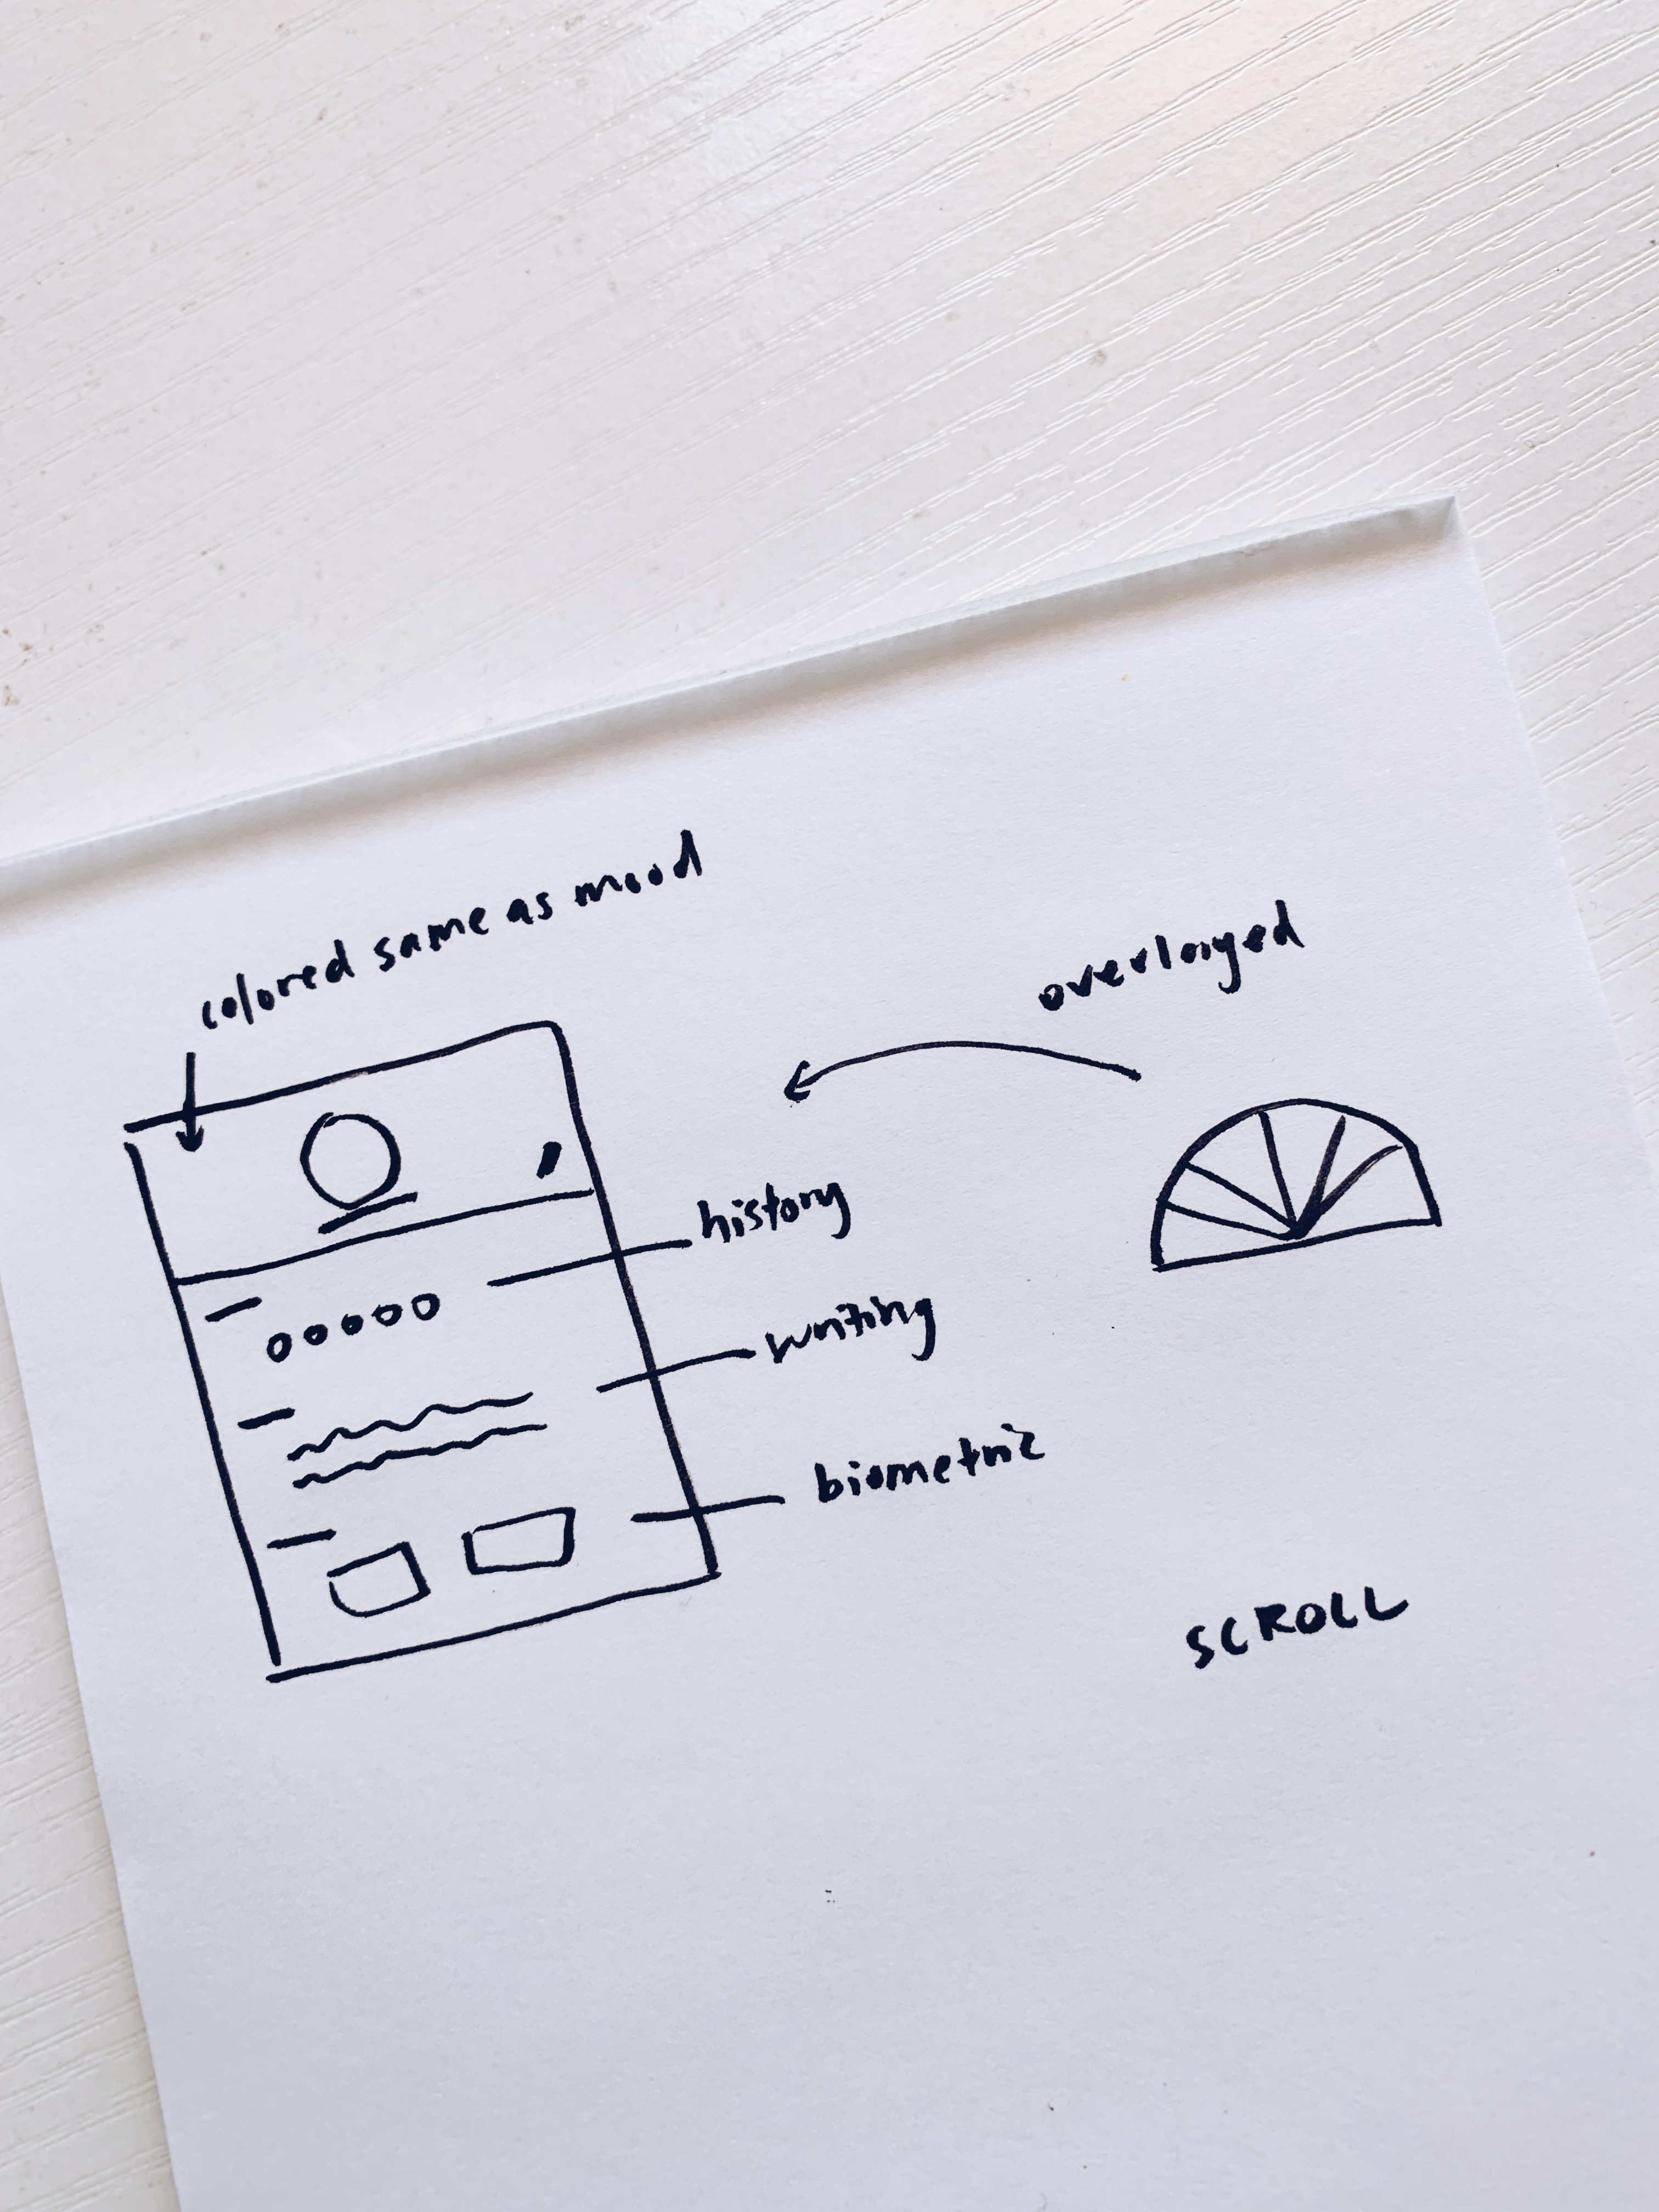 colored same as mood
overlayed
history
writing
biometric
SCROLL